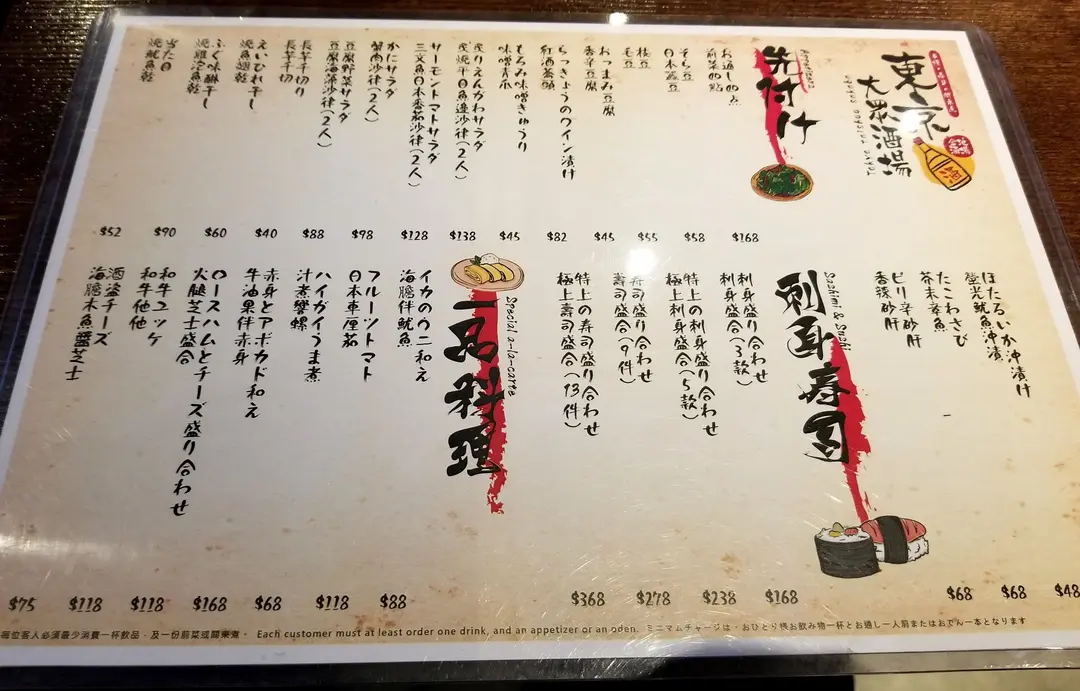 東京
大衆酒場
Tokyo taishuu sakaba
酒
先付け
お通し四点
前菜四點
$168
そら豆
日本蠶豆
$58
枝豆
毛豆
$55
おつまみ豆腐
香辛豆腐
$45
らっきょうのワイン漬け
紅酒蕎頭
$82
もろみ味噌きゅうり
味噌青瓜
$45
炙りえんがわサラダ
炙燒平目魚邊沙律(2人)
$138
サーモントマトサラダ
三文魚日本番茄沙律(2人)
$128
かにサラダ
蟹肉沙律(2人)
$98
豆腐野菜サラダ
豆腐海藻沙律(2人)
$88
長芋千切り
長芋千切
$40
えいひれ干し
燒魚翅乾
$60
ふぐ味醂干し
燒雞泡魚乾
$90
当た目
燒魷魚乾
$52
ほたるいか沖漬け
螢光魷魚沖漬
$48
たこわさび
芥末章魚
$68
ピリ辛砂肝
香辣砂肝
$68
刺身寿司
Sashimi & Sushi
刺身盛り合わせ
刺身盛合(3款)
$168
特上の刺身盛り合わせ
極上刺身盛合(5款)
$238
寿司盛り合わせ
壽司盛合(9件)
$278
特上の寿司盛り合わせ
極上壽司盛合(13件)
$368
一品料理
Special a-la-carte
イカのウニ和え
海膽伴魷魚
$88
フルーツトマト
日本車厘茄
$118
ハイガイうま煮
汁煮響螺
$68
赤身とアボカド和え
牛油果伴赤身
$168
ロースハムとチーズ盛り合わせ
火腿芝士盛合
$118
和牛ユッケ
和牛他他
$118
酒盗チーズ
海膽木魚醬芝士
$75
每位客人必須最少消費一杯飲品，及一份前菜或關東煮。 Each customer must at least order one drink, and an appetizer or an oden. ミニマムチャージは、おひとり様お飲み物一杯とお通し一人前またはおでん一本となります